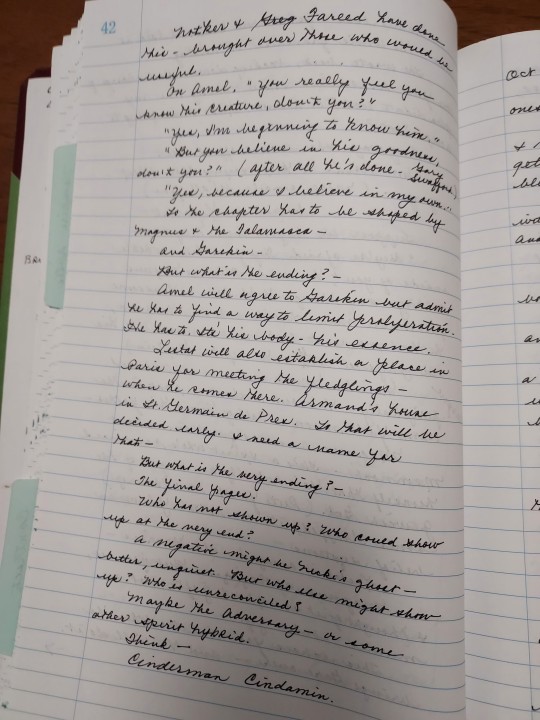 42
Notker & Greg Fareed have done
this - brought over those who would be
useful.
On Amel, "you really feel you
know this creature, don't you?"
"Yes, I'm beginning to know him."
"But you believe in his goodness,
don't you?" (after all he's done - Gary
"Yes, because I believe in my own."
So the chapter has to be shaped by
Magnus & the Talamasca —
and Garekin —
But what is the ending? —
Amel will agree to Garekin but admit
he has to find a way to limit proliferation.
He has to. It's his body - his essence.
Lestat will also establish a place in
Paris for meeting the fledglings —
when he comes there. Armand's house
in St. Germain de Prex. So that will be
decided early. I need a name for
that —
But what is the very ending? —
The final pages.
Who has not shown up? Who could show
up at the very end?
A negative might be Nicki's ghost —
bitter, unquiet. But who else might show
up? Who is unreconciled?
Maybe the Adversary — or some
other spirit hybrid.
Think —
Cinderman Cindamin.
Oct